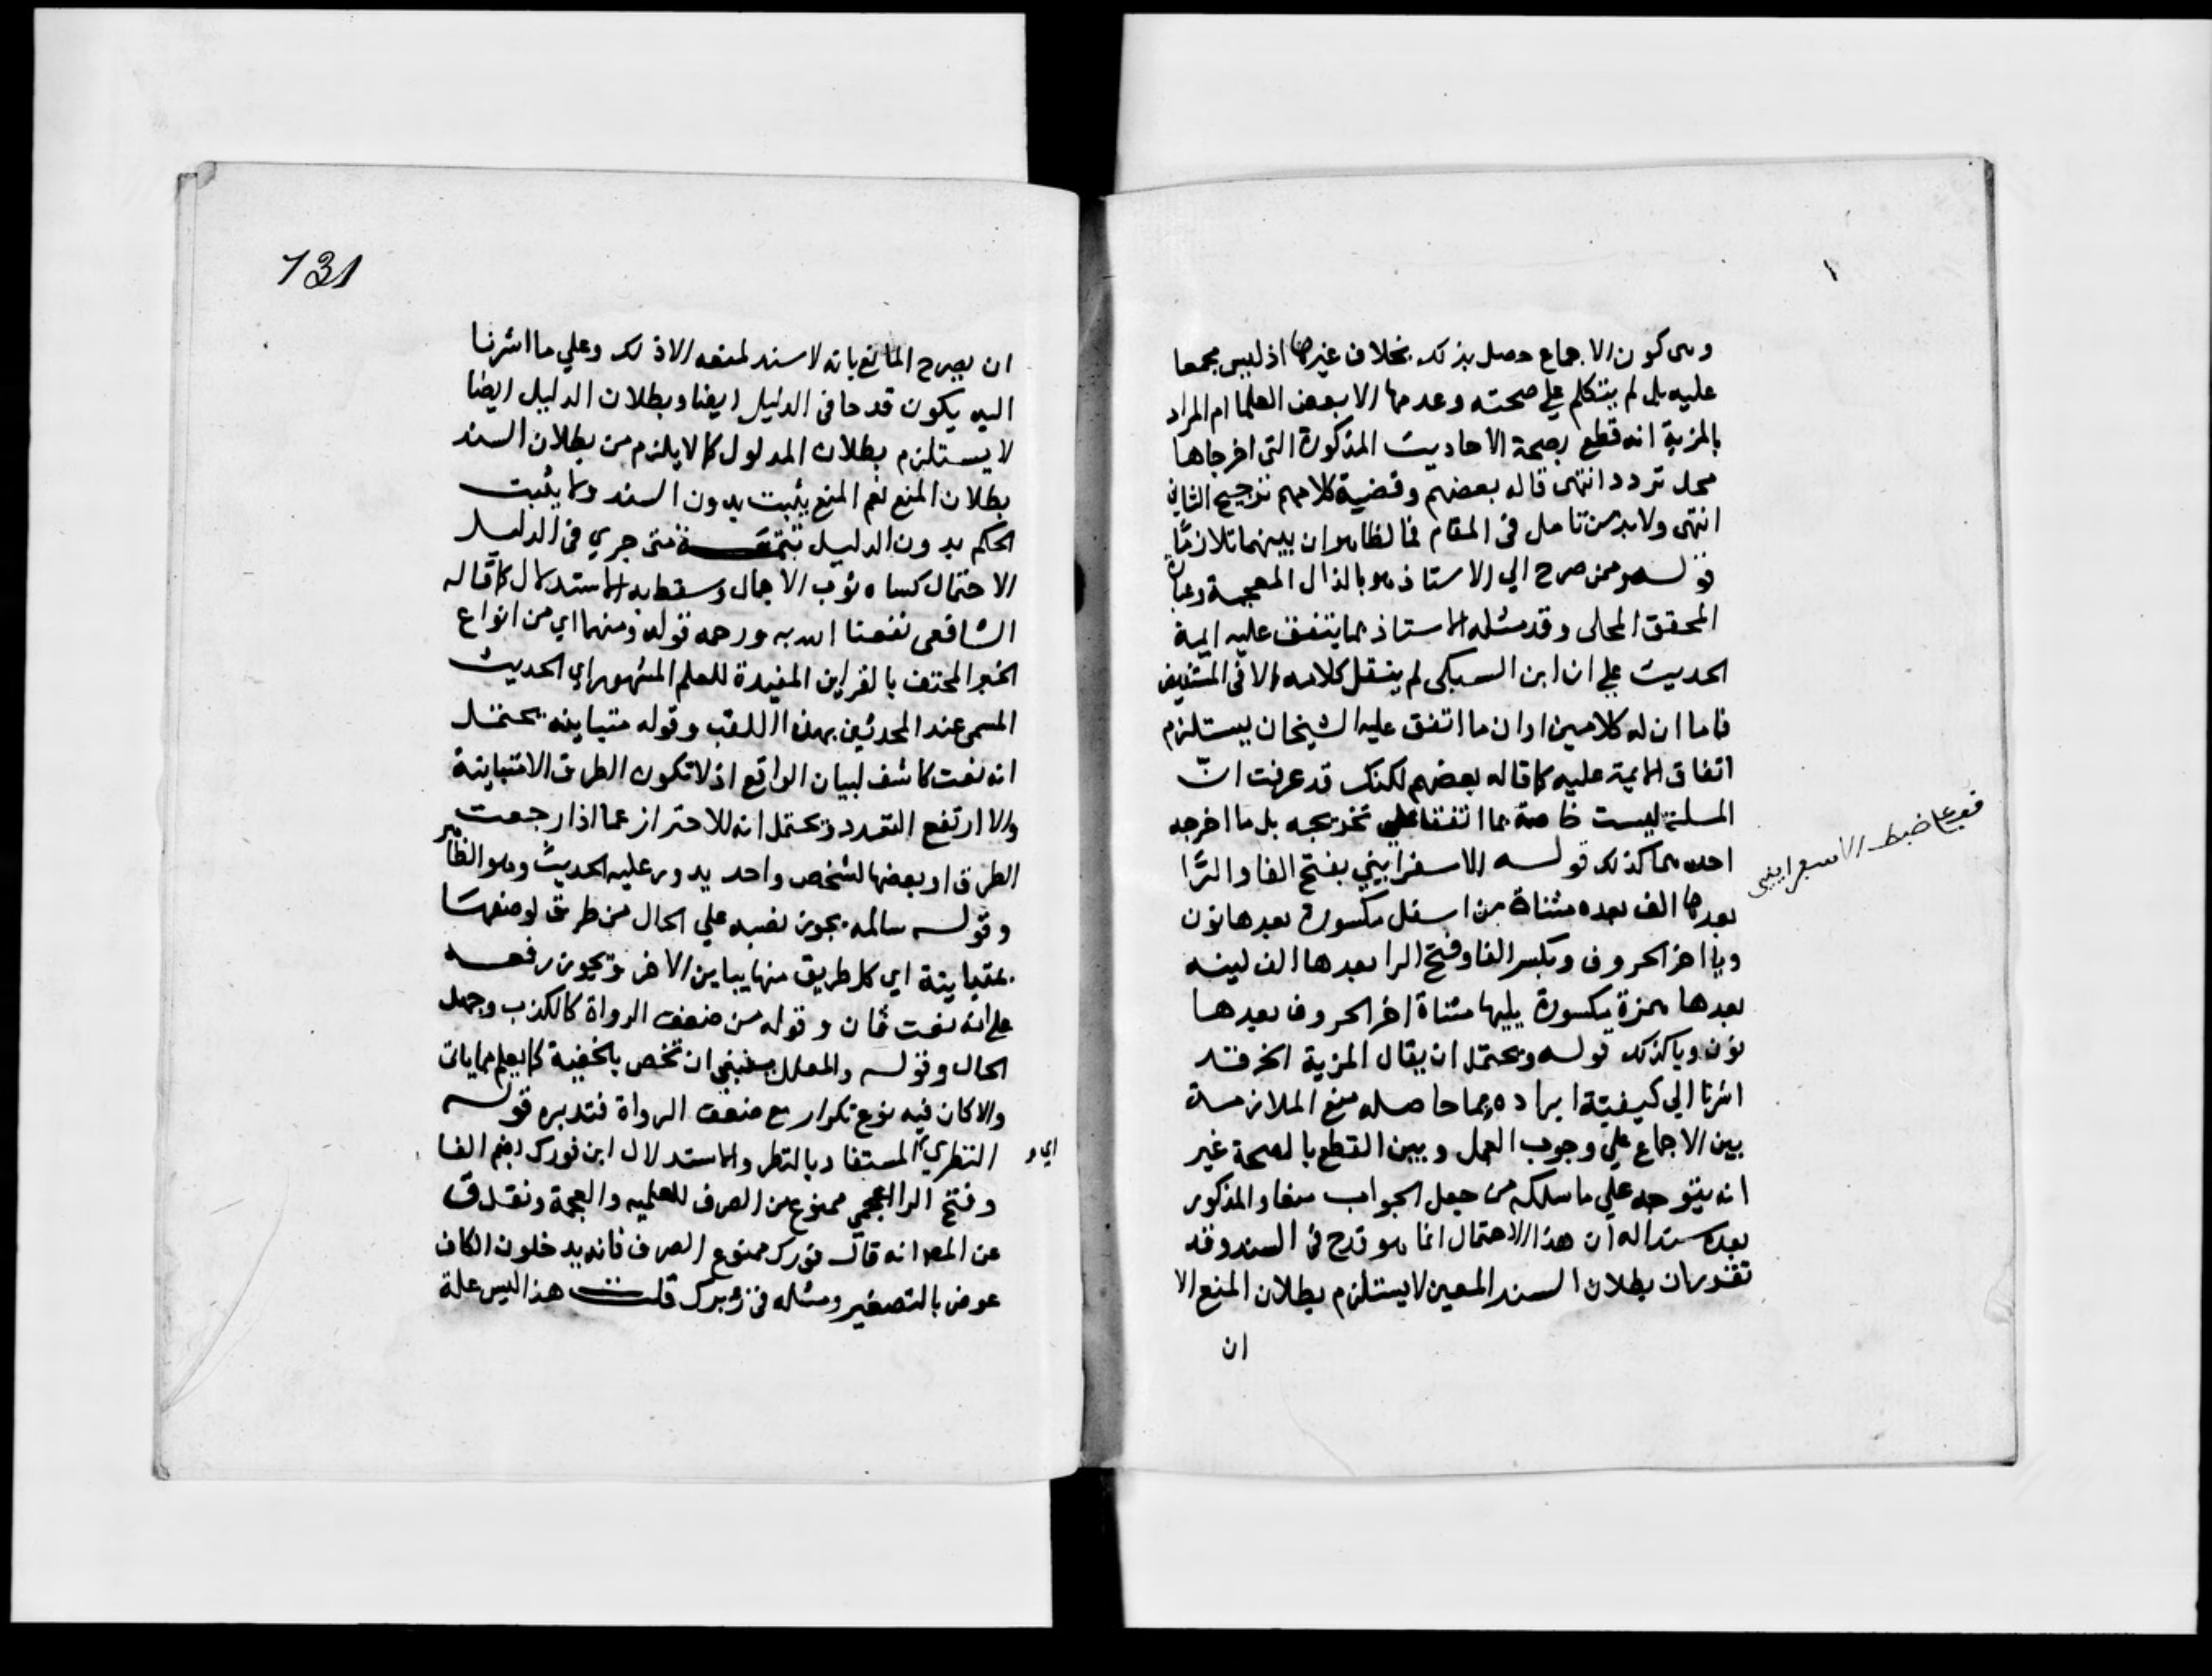 وهي كون الاجماع حصل بذلك بخلاف غيرها اذ ليس مجمعا
عليه بل لم يتكلم علي صحته وعدمها الا بعض العلما ام المراد
بالمزية انه قطع بصحة الاحاديث المذكورة التي اخرجاها
محل تردد انتهى قاله بعضهم وقضية كلامهم ترجيح الثاني
انتهى ولا بد من تامل في المقام فالظاهر ان بينهما تلازمًا
قوله وممن صرح الي الاستاذ هو بالذال المعجمة وعبارة
المحقق المحلي وقد مثله الاستاذ بما يتفق عليه ايمة
الحديث علي ان ابن السبكي لم ينقل كلامه الا في المستفيض
فاما ان له كلامين او ان ما اتفق عليه الشيخان يستلزم
اتفاق الايمة عليه كما قاله بعضهم لكنك قد عرفت انّ
المسلة ليست خاصة بما اتفقا علي تخريجه بل ما اخرجه
احدهما كذلك قوله الاسفراييني بفتح الفا والرَّا
بعدها الف بعده مثناة من اسفل مكسورة بعدها نون
ويا اخر الحروف وبكسر الفا وفتح الرا بعدها الف لينه
بعدها همزة مكسورة يليها مثناة اخر الحروف بعدها
نون ويا كذلك قوله ويحتمل ان يقال المزية الخ قد
اشرنا الي كيفية ايراده بما حاصله منع الملازمة
بين الاجماع علي وجوب العمل وبين القطع بالصحة غير
انه يتوجه علي ما سلكه من جعل الجواب منعا والمذكور
بعده سندا له ان هذا الاحتمال انما هو قدح في السند وقد
تقرر ان بطلان السند المعين لا يستلزم بطلان المنع الا
ان
ضبط الاسفراييني
131
ان يصرح المانع بانه لا سند لمنعه الا ذلك وعلي ما اشرنا
اليه يكون قدحا في الدليل ايضا وبطلان الدليل ايضا
لا يستلزم بطلان المدلول كما لا يلزم من بطلان السند
بطلان المنع نعم المنع يثبت بدون السند ولا يثبت
الحكم بدون الدليل تتمة متى جري في الدليل
الاحتمال كساه ثوب الاجمال وسقط به الاستدلال كما قاله
الشافعي نفعنا الله به ورحمه قوله ومنها اي من انواع
الخبر المحتف بالقراين المفيدة للعلم المشهور اي الحديث
المسمى عند المحدثين بهذا اللقب وقوله متباينه يحتمل
انه نعت كاشف لبيان الواقع اذ لا تكون الطرق الا متباينة
والا ارتفع التعدد ويحتمل انه للاحتراز عما اذا رجعت
الطرق او بعضها لشخص واحد يدور عليه الحديث وهو الظاهر
وقوله سالمه يجوز نصبه علي الحال من طرق لوصفها
بمتباينة اي كل طريق منها يباين الاخر ويجوز رفعه
علي انه نعت ثان وقوله من ضعف الرواة كالكذب وجهل
الحال وقوله والعلل ينبغي ان تخص بالخفية كما يعلم مما ياتي
والا كان فيه نوع تكرار مع ضعف الرواة فتدبره قوله
النظري اي المستفاد بالنظر والاستدلال ابن فورك بضم الفا
وفتح الرا اعجمي ممنوع من الصرف للعلميه والعجمة ونقل ق
عن المص انه قال فورك ممنوع الصرف فانه يدخلون الكاف
عوض بالتصغير ومثله في زيرك قلت هذا ليس علة